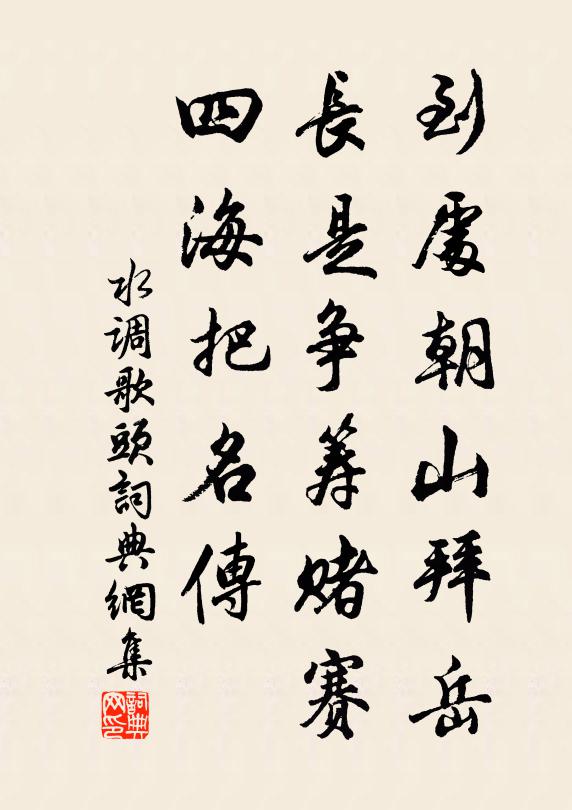 到處朝山拜岳
長是爭筹賭賽
四海把名傳
水调歌頭詞典網集
詞典
网印